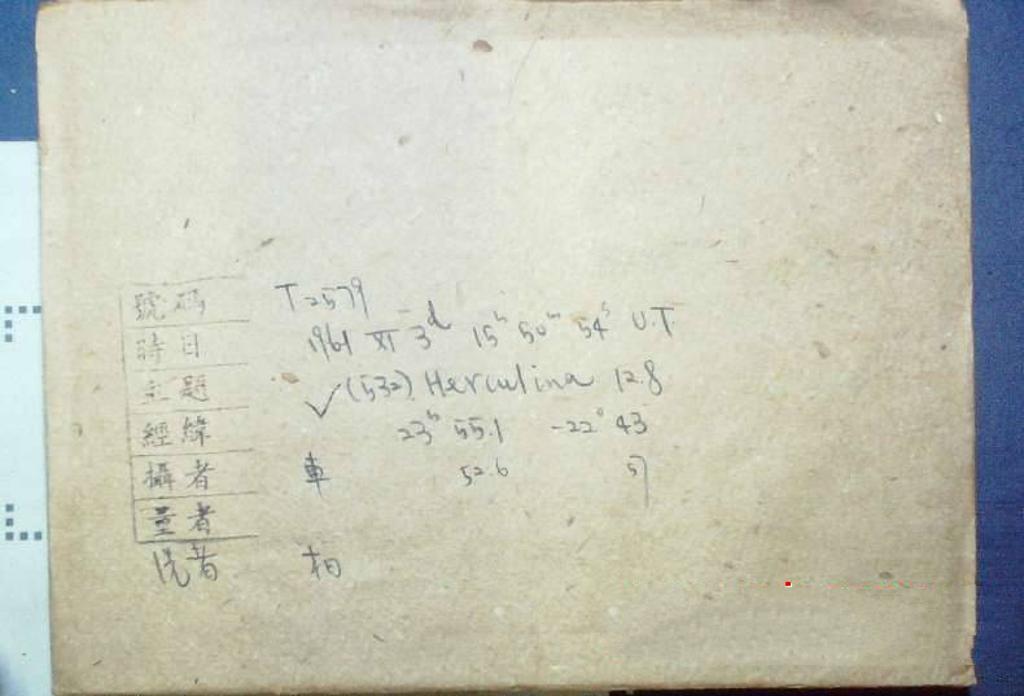 號碼 T2579
時日 1961 XI 3d 15h 50m 54s U.T
主題 ✓(532) Herculina 12.8
經緯 23h 55.1 -22° 43
攝者 車 52.6 57
量者
洗者 柏